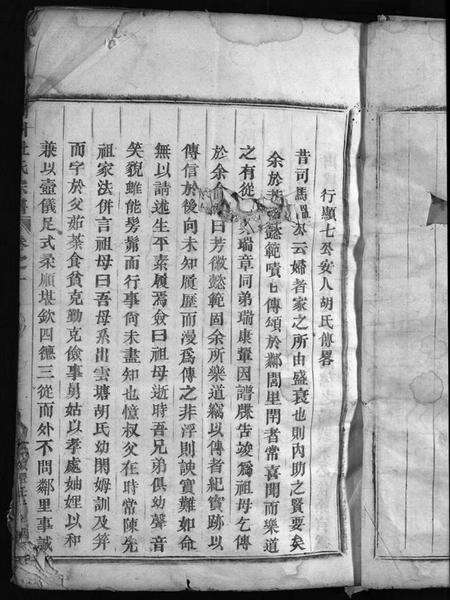 行顯七公安人胡氏傳畧
昔司馬溫公云婦者家之所由盛衰也則內助之賢要矣
余於懿範嘖嘖傳頌於鄰閭里閈者常喜聞而樂道
之有從瑞章同弟瑞康輩因譜牒告竣爲祖母乞傳
於余余曰芳徽懿範固余所樂道竊以傳者紀實跡以
傳信於後向未知履歷而漫爲傳之非浮則諛實難如命
無以請述生平素履焉僉曰祖母逝時吾兄弟俱幼聲音
笑貌雖能髣髴而行事尙未盡知也憶叔父在時常陳先
祖家法併言祖母曰吾母系出雲塘胡氏幼閑姆訓及笄
而字於父茹荼食貧克勤克儉事舅姑以孝處妯娌以和
兼以壼儀足式柔順堪欽四德三從而外不問鄰里事誠